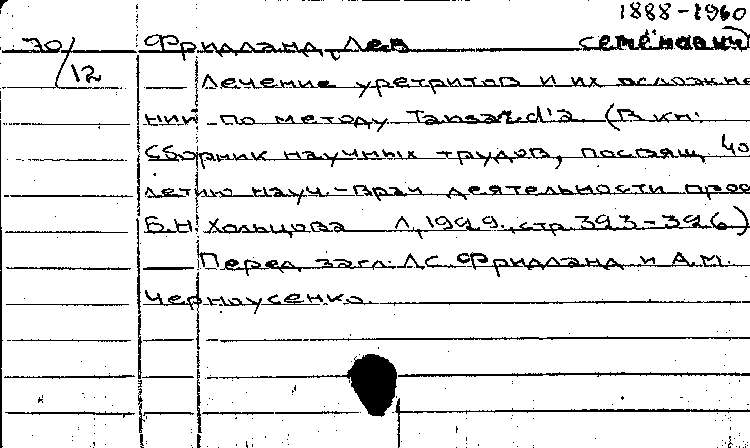 1888-1960
70/12 Фридланд, Лев Семёнович
Лечение уретритов и их осложне
ний по методу Tansard'a. (В кн:
Сборник научных трудов, посвящ. 40
летию науч.-врач деятельности проф
Б.Н. Хольцова Л, 1929., стр 393-396)
Перед загл: Л.С. Фридланд и А.М.
Черноусенко.